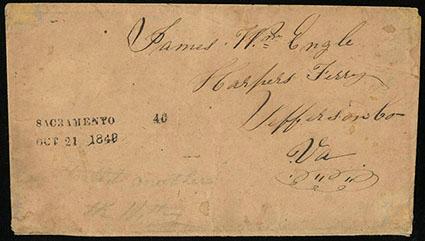 James Wm Engle
Harpers Ferry
SACRAMENTO 40
OCT 21 1849
Jefferson Co
Va
mother